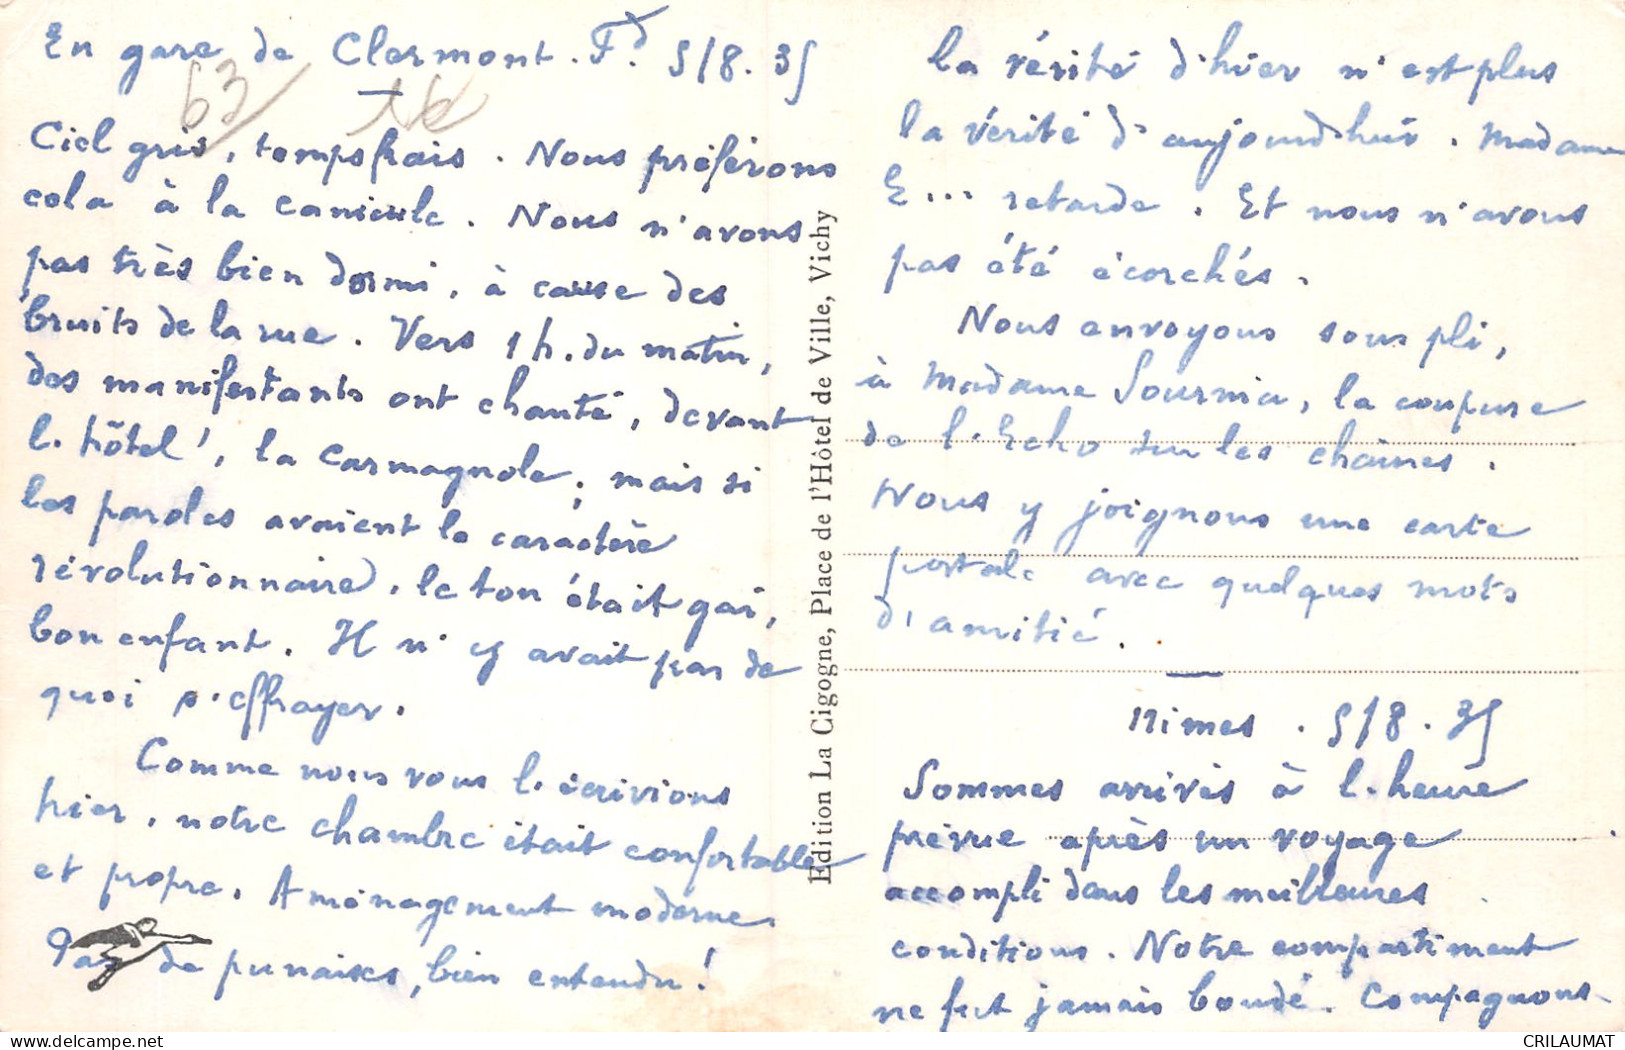 En gare de Clermont. Fd. 5/8.35
63
Ciel gris, temps frais. Nous préférons
cela à la canicule. Nous n'avons
pas très bien dormi, à cause des
bruits de la rue. Vers 1 h. du matin,
des manifestants ont chanté, devant
l'hôtel, la Carmagnole; mais si
les paroles avaient le caractère
révolutionnaire, le ton était gai,
bon enfant. Il n'y avait pas de
quoi s'effrayer.
Comme nous vous l'écrivions
hier, notre chambre était confortable
et propre. Aménagement moderne.
Pas de punaises, bien entendu!
Edition La Cigogne, Place de l'Hôtel de Ville, Vichy
la vérité d'hier n'est plus
la vérité d'aujourd'hui. Madame
E... retarde. Et nous n'avons
pas été écorchés.
Nous envoyons sous pli,
à Madame Sournia, la coupure
de l'Echo sur les chaînes.
Nous y joignons une carte
postale avec quelques mots
d'amitié.
Nimes. 5/8.35
Sommes arrivés à l'heure
prévue après un voyage
accompli dans les meilleures
conditions. Notre compartiment
ne fut jamais bondé. Compagnons
CRILAUMAT